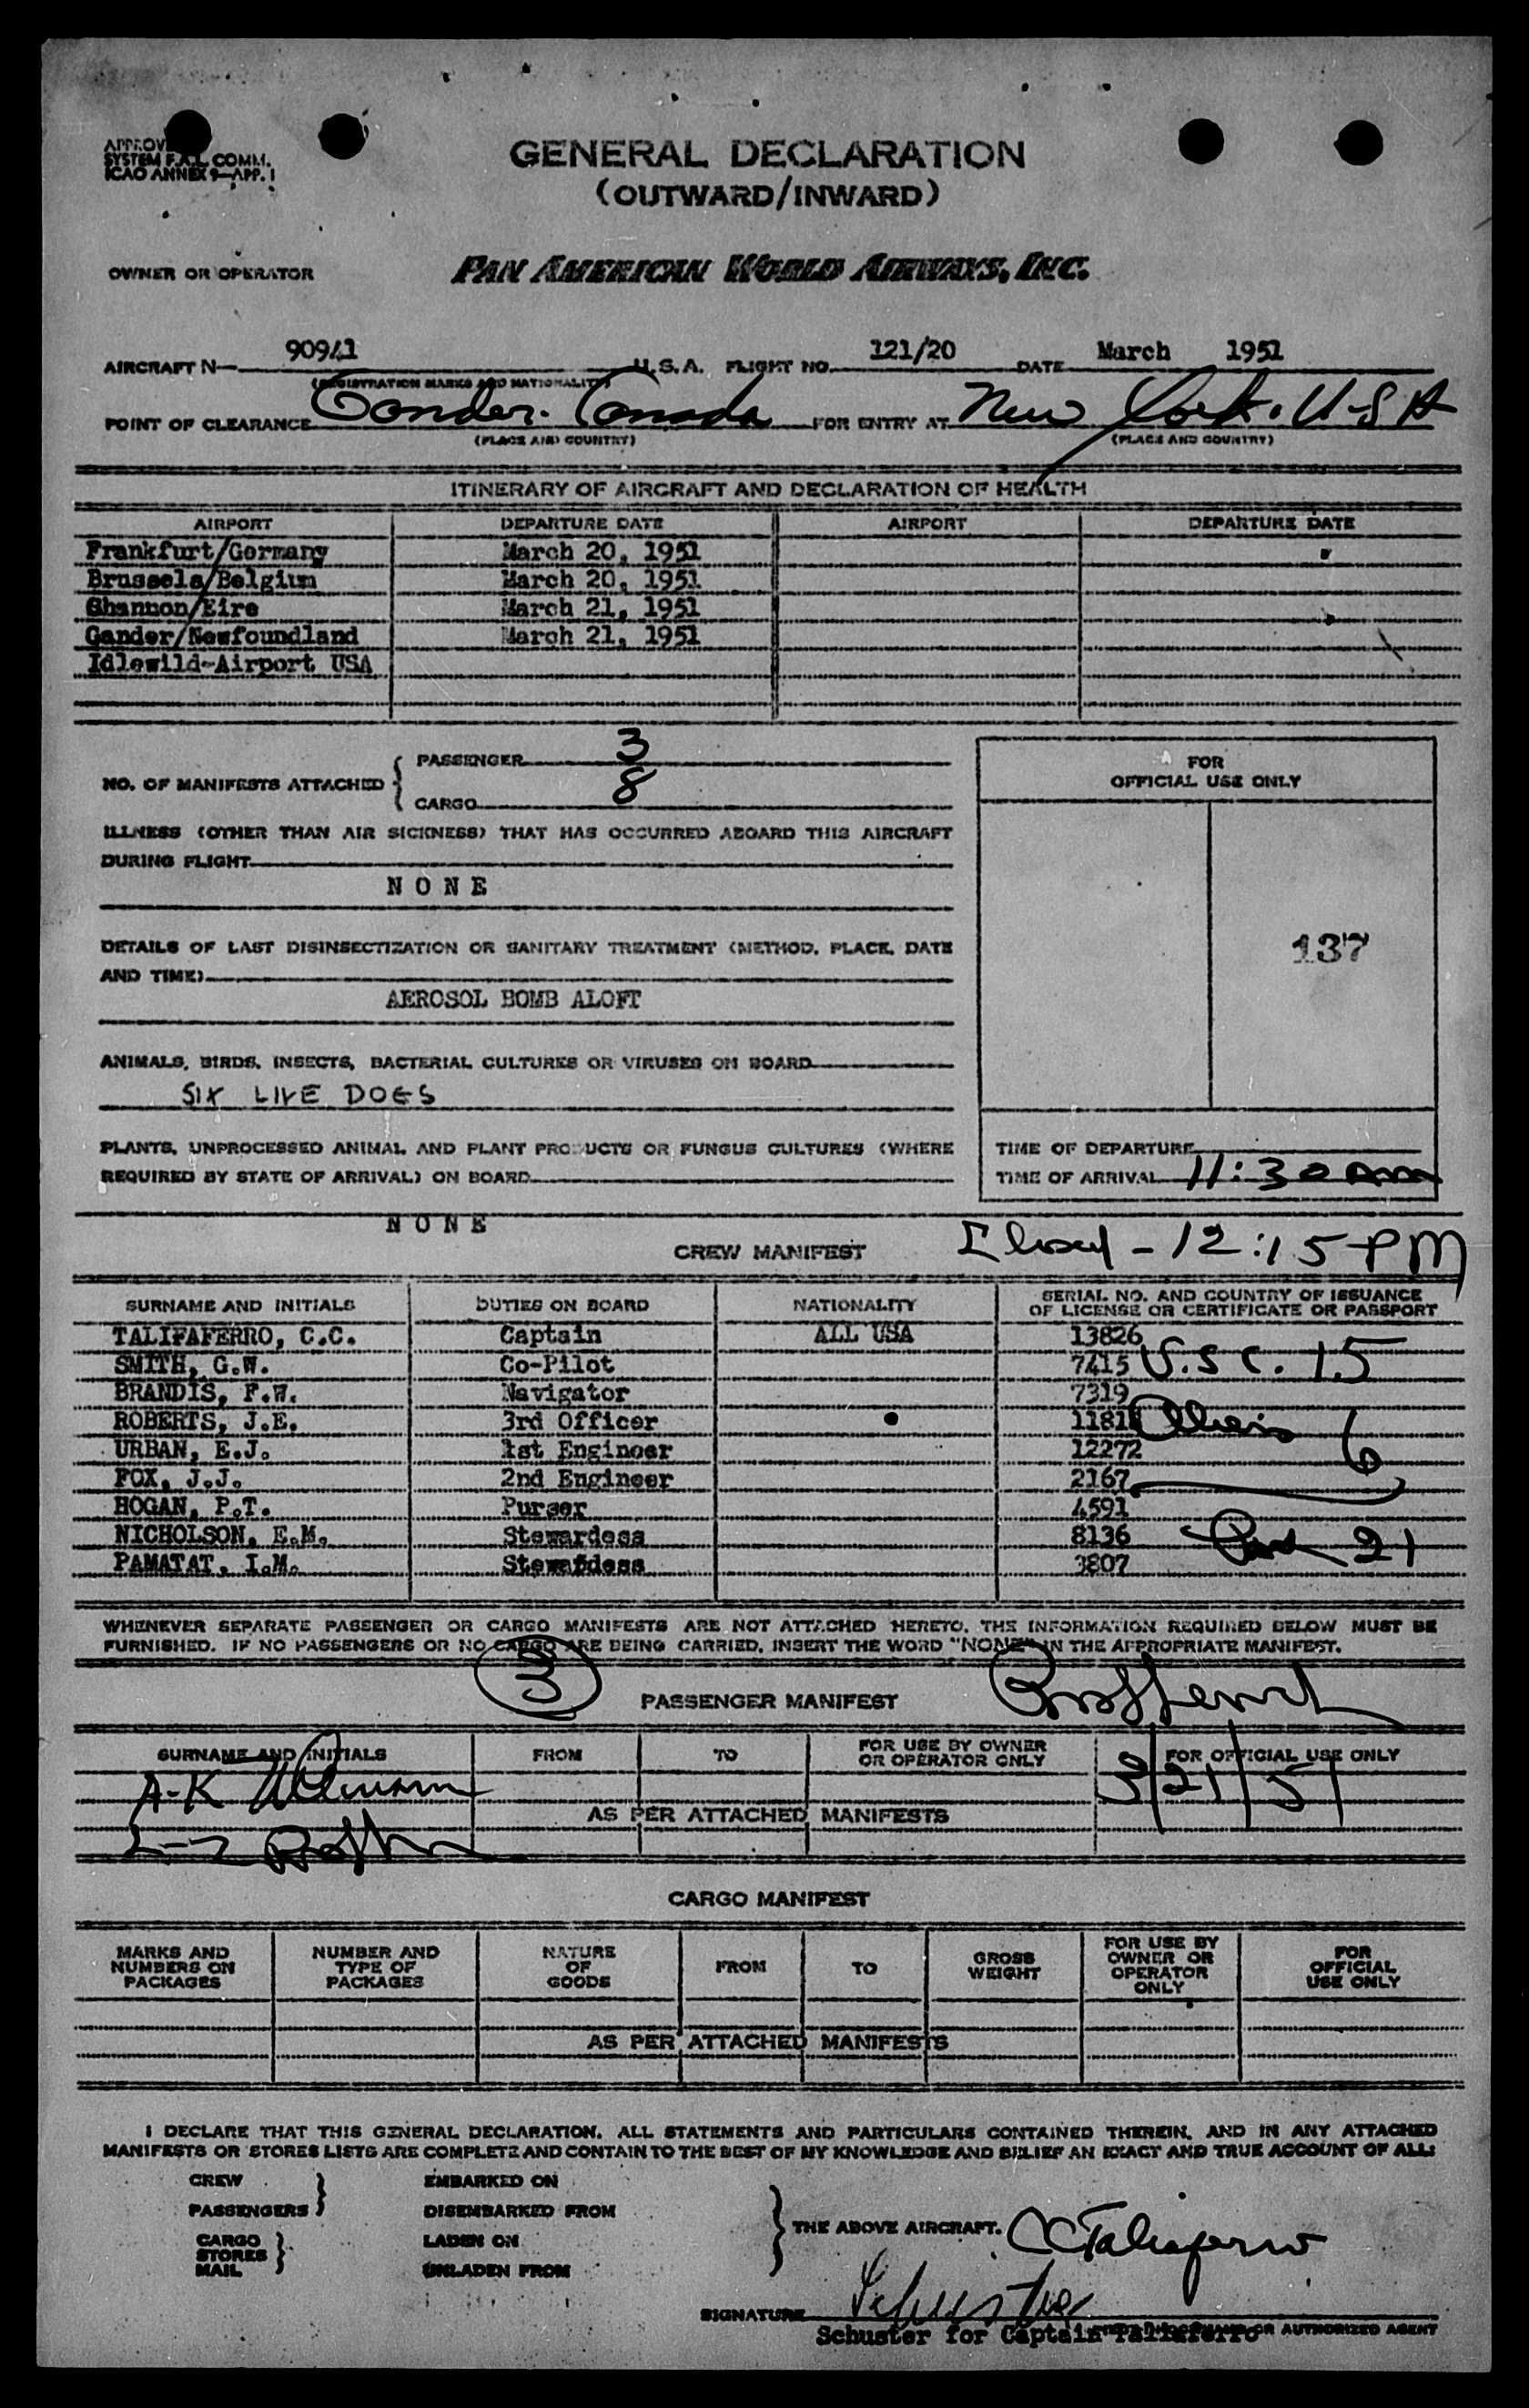 SYSTEM F.A.L. COMM.
ICAO ANNEX 9—APP. 1
GENERAL DECLARATION
(OUTWARD/INWARD)
OWNER OR OPERATOR PAN AMERICAN WORLD AIRWAYS, INC.
AIRCRAFT N— 90941 U.S.A. FLIGHT NO. 121/20 DATE March 1951
(REGISTRATION MARKS AND NATIONALITY)
POINT OF CLEARANCE Gander. Canada FOR ENTRY AT New York. U-S A
(PLACE AND COUNTRY) (PLACE AND COUNTRY)
ITINERARY OF AIRCRAFT AND DECLARATION OF HEALTH
AIRPORT DEPARTURE DATE AIRPORT DEPARTURE DATE
Frankfurt/Germany March 20, 1951
Brussels/Belgium March 20, 1951
Shannon/Eire March 21, 1951
Gander/Newfoundland March 21, 1951
Idlewild-Airport USA
NO. OF MANIFESTS ATTACHED
PASSENGER 3
CARGO 8
FOR
OFFICIAL USE ONLY
ILLNESS (OTHER THAN AIR SICKNESS) THAT HAS OCCURRED ABOARD THIS AIRCRAFT
DURING FLIGHT
N O N E
DETAILS OF LAST DISINSECTIZATION OR SANITARY TREATMENT (METHOD, PLACE, DATE
AND TIME)
137
AEROSOL BOMB ALOFT
ANIMALS, BIRDS, INSECTS, BACTERIAL CULTURES OR VIRUSES ON BOARD
SIX LIVE DOGS
PLANTS, UNPROCESSED ANIMAL AND PLANT PRODUCTS OR FUNGUS CULTURES (WHERE
REQUIRED BY STATE OF ARRIVAL) ON BOARD
TIME OF DEPARTURE
TIME OF ARRIVAL 11:30 am
N O N E
CREW MANIFEST
12:15 PM
SURNAME AND INITIALS DUTIES ON BOARD NATIONALITY SERIAL NO. AND COUNTRY OF ISSUANCE
OF LICENSE OR CERTIFICATE OR PASSPORT
TALIFAFERRO, C.C. Captain ALL USA 13826
SMITH, G.W. Co-Pilot 7415 U.S C. 15
BRANDIS, F.W. Navigator 7319
ROBERTS, J.E. 3rd Officer Others 6
URBAN, E.J. 1st Engineer 12272
FOX, J.J. 2nd Engineer 2167
HOGAN, P.T. Purser 4591
NICHOLSON, E.M. Stewardess 8136 21
PAMATAT, I.M. Stewardess 3807
WHENEVER SEPARATE PASSENGER OR CARGO MANIFESTS ARE NOT ATTACHED HERETO, THE INFORMATION REQUIRED BELOW MUST BE
FURNISHED. IF NO PASSENGERS OR NO CARGO ARE BEING CARRIED, INSERT THE WORD "NONE" IN THE APPROPRIATE MANIFEST.
3
PASSENGER MANIFEST
SURNAME AND INITIALS FROM TO FOR USE BY OWNER
OR OPERATOR ONLY FOR OFFICIAL USE ONLY
A-K
3/21/51
AS PER ATTACHED MANIFESTS
L-Z
CARGO MANIFEST
MARKS AND
NUMBERS ON
PACKAGES
NUMBER AND
TYPE OF
PACKAGES
NATURE
OF
GOODS
FROM
TO
GROSS
WEIGHT
FOR USE BY
OWNER OR
OPERATOR
ONLY
FOR
OFFICIAL
USE ONLY
AS PER ATTACHED MANIFESTS
I DECLARE THAT THIS GENERAL DECLARATION, ALL STATEMENTS AND PARTICULARS CONTAINED THEREIN, AND IN ANY ATTACHED
MANIFESTS OR STORES LISTS ARE COMPLETE AND CONTAIN TO THE BEST OF MY KNOWLEDGE AND BELIEF AN EXACT AND TRUE ACCOUNT OF ALL:
CREW EMBARKED ON
PASSENGERS DISEMBARKED FROM
CARGO LADEN ON
STORES
MAIL UNLADEN FROM
THE ABOVE AIRCRAFT. CCTaliaferro
SIGNATURE Schuster
Schuster for Captain Taliaferro OR AUTHORIZED AGENT